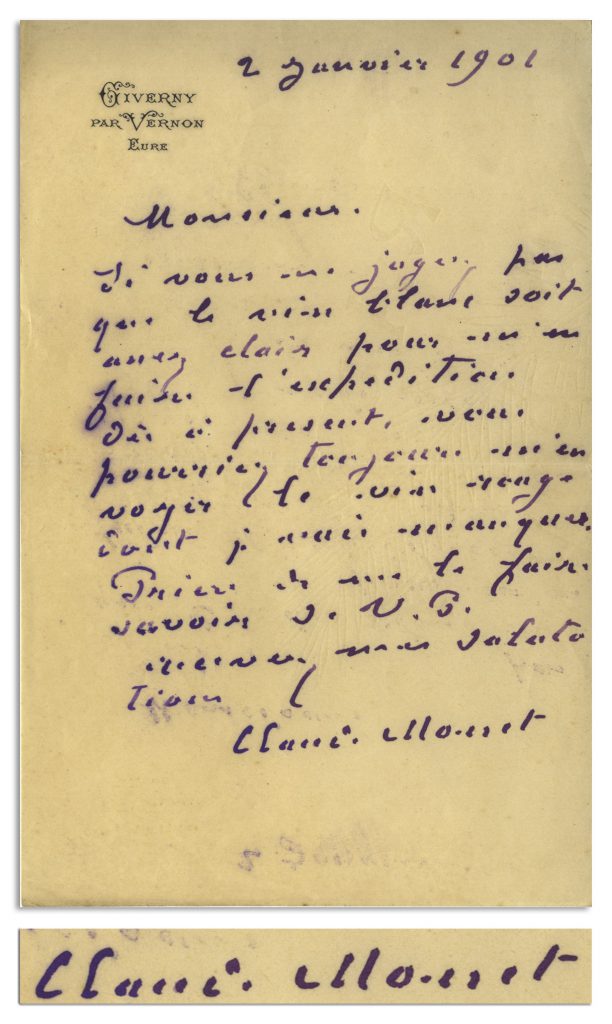 2 Janvier 1901
GIVERNY
PAR VERNON
EURE
Monsieur.
Si vous ne jugez pas
que le vin blanc soit
assez clair pour m'en
faire l'expédition
dès à présent, vous
pourriez toujours m'en
voyer le vin rouge
dont je vais manquer.
Prière de me le faire
savoir S. V. P.
recevez mes saluta
tions
Claude Monet
Claude Monet